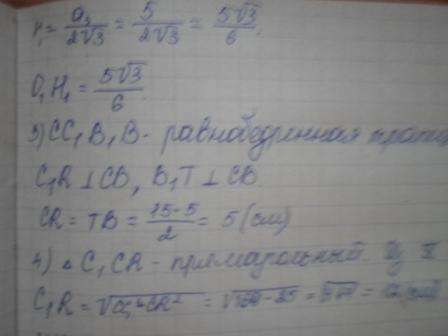 r₁ = a₃/2√3 = 5/2√3 = 5√3/6.
O₁H₁ = 5√3/6.
3) CC₁B₁B - равнобедренная трапец
C₁R ⊥ CB, B₁T ⊥ CB
CR = TB = 15-5/2 = 5 (см)
4) △ C₁CR - прямоугольный. Из
C₁R = √CC₁²-CR² =